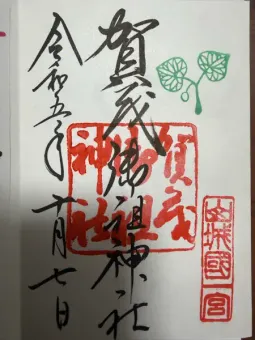 山城國一宮
賀茂御祖神社
賀茂
御祖
神社
令和五年十月七日